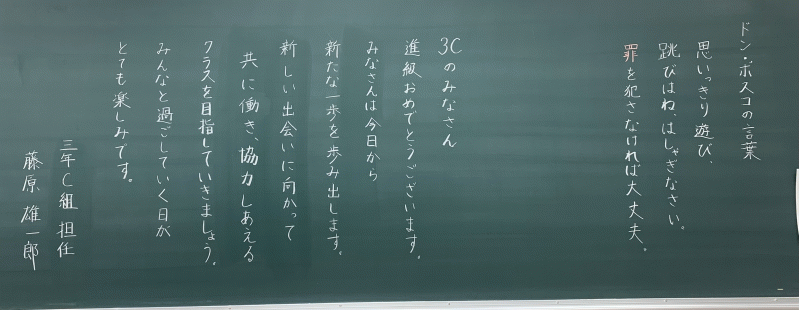 ドン・ボスコの言葉
思いっきり遊び、
跳びはね、はしゃぎなさい。
罪を犯さなければ大丈夫。
3Cのみなさん
進級おめでとうございます。
みなさんは今日から
新たな一歩を歩み出します。
新しい出会いに向かって
共に働き、協力しあえる
クラスを目指していきましょう。
みんなと過ごしていく日が
とても楽しみです。
三年C組 担任
藤原 雄一郎